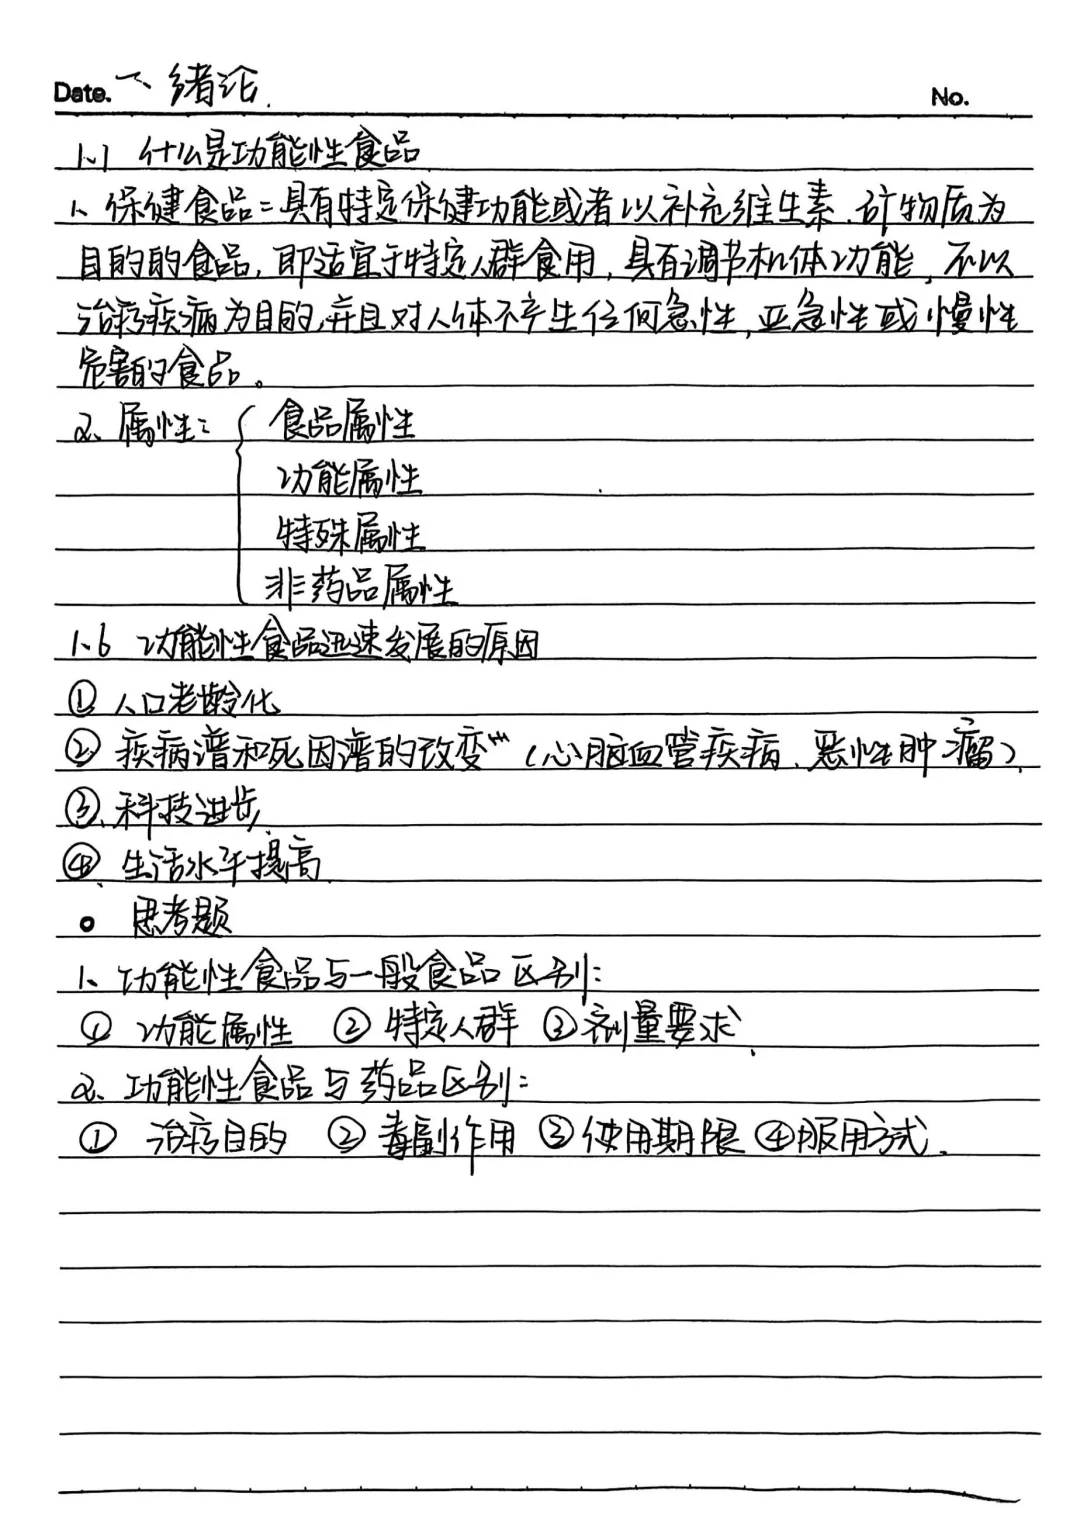 Date. 一、绪论.
No.
1.1 什么是功能性食品
1、保健食品:具有特定保健功能或者以补充维生素、矿物质为
目的的食品,即适宜于特定人群食用,具有调节机体功能,不以
治疗疾病为目的,并且对人体不产生任何急性,亚急性或慢性
危害的食品。
2、属性: { 食品属性
功能属性
特殊属性
非药品属性
1.6 功能性食品迅速发展的原因
① 人口老龄化
② 疾病谱和死因谱的改变 (心脑血管疾病、恶性肿瘤).
③.科技进步.
④.生活水平提高.
思考题
1、功能性食品与一般食品区别:
① 功能属性 ② 特定人群 ③ 剂量要求.
2、功能性食品与药品区别:
① 治疗目的 ② 毒副作用 ③ 使用期限 ④服用方式.